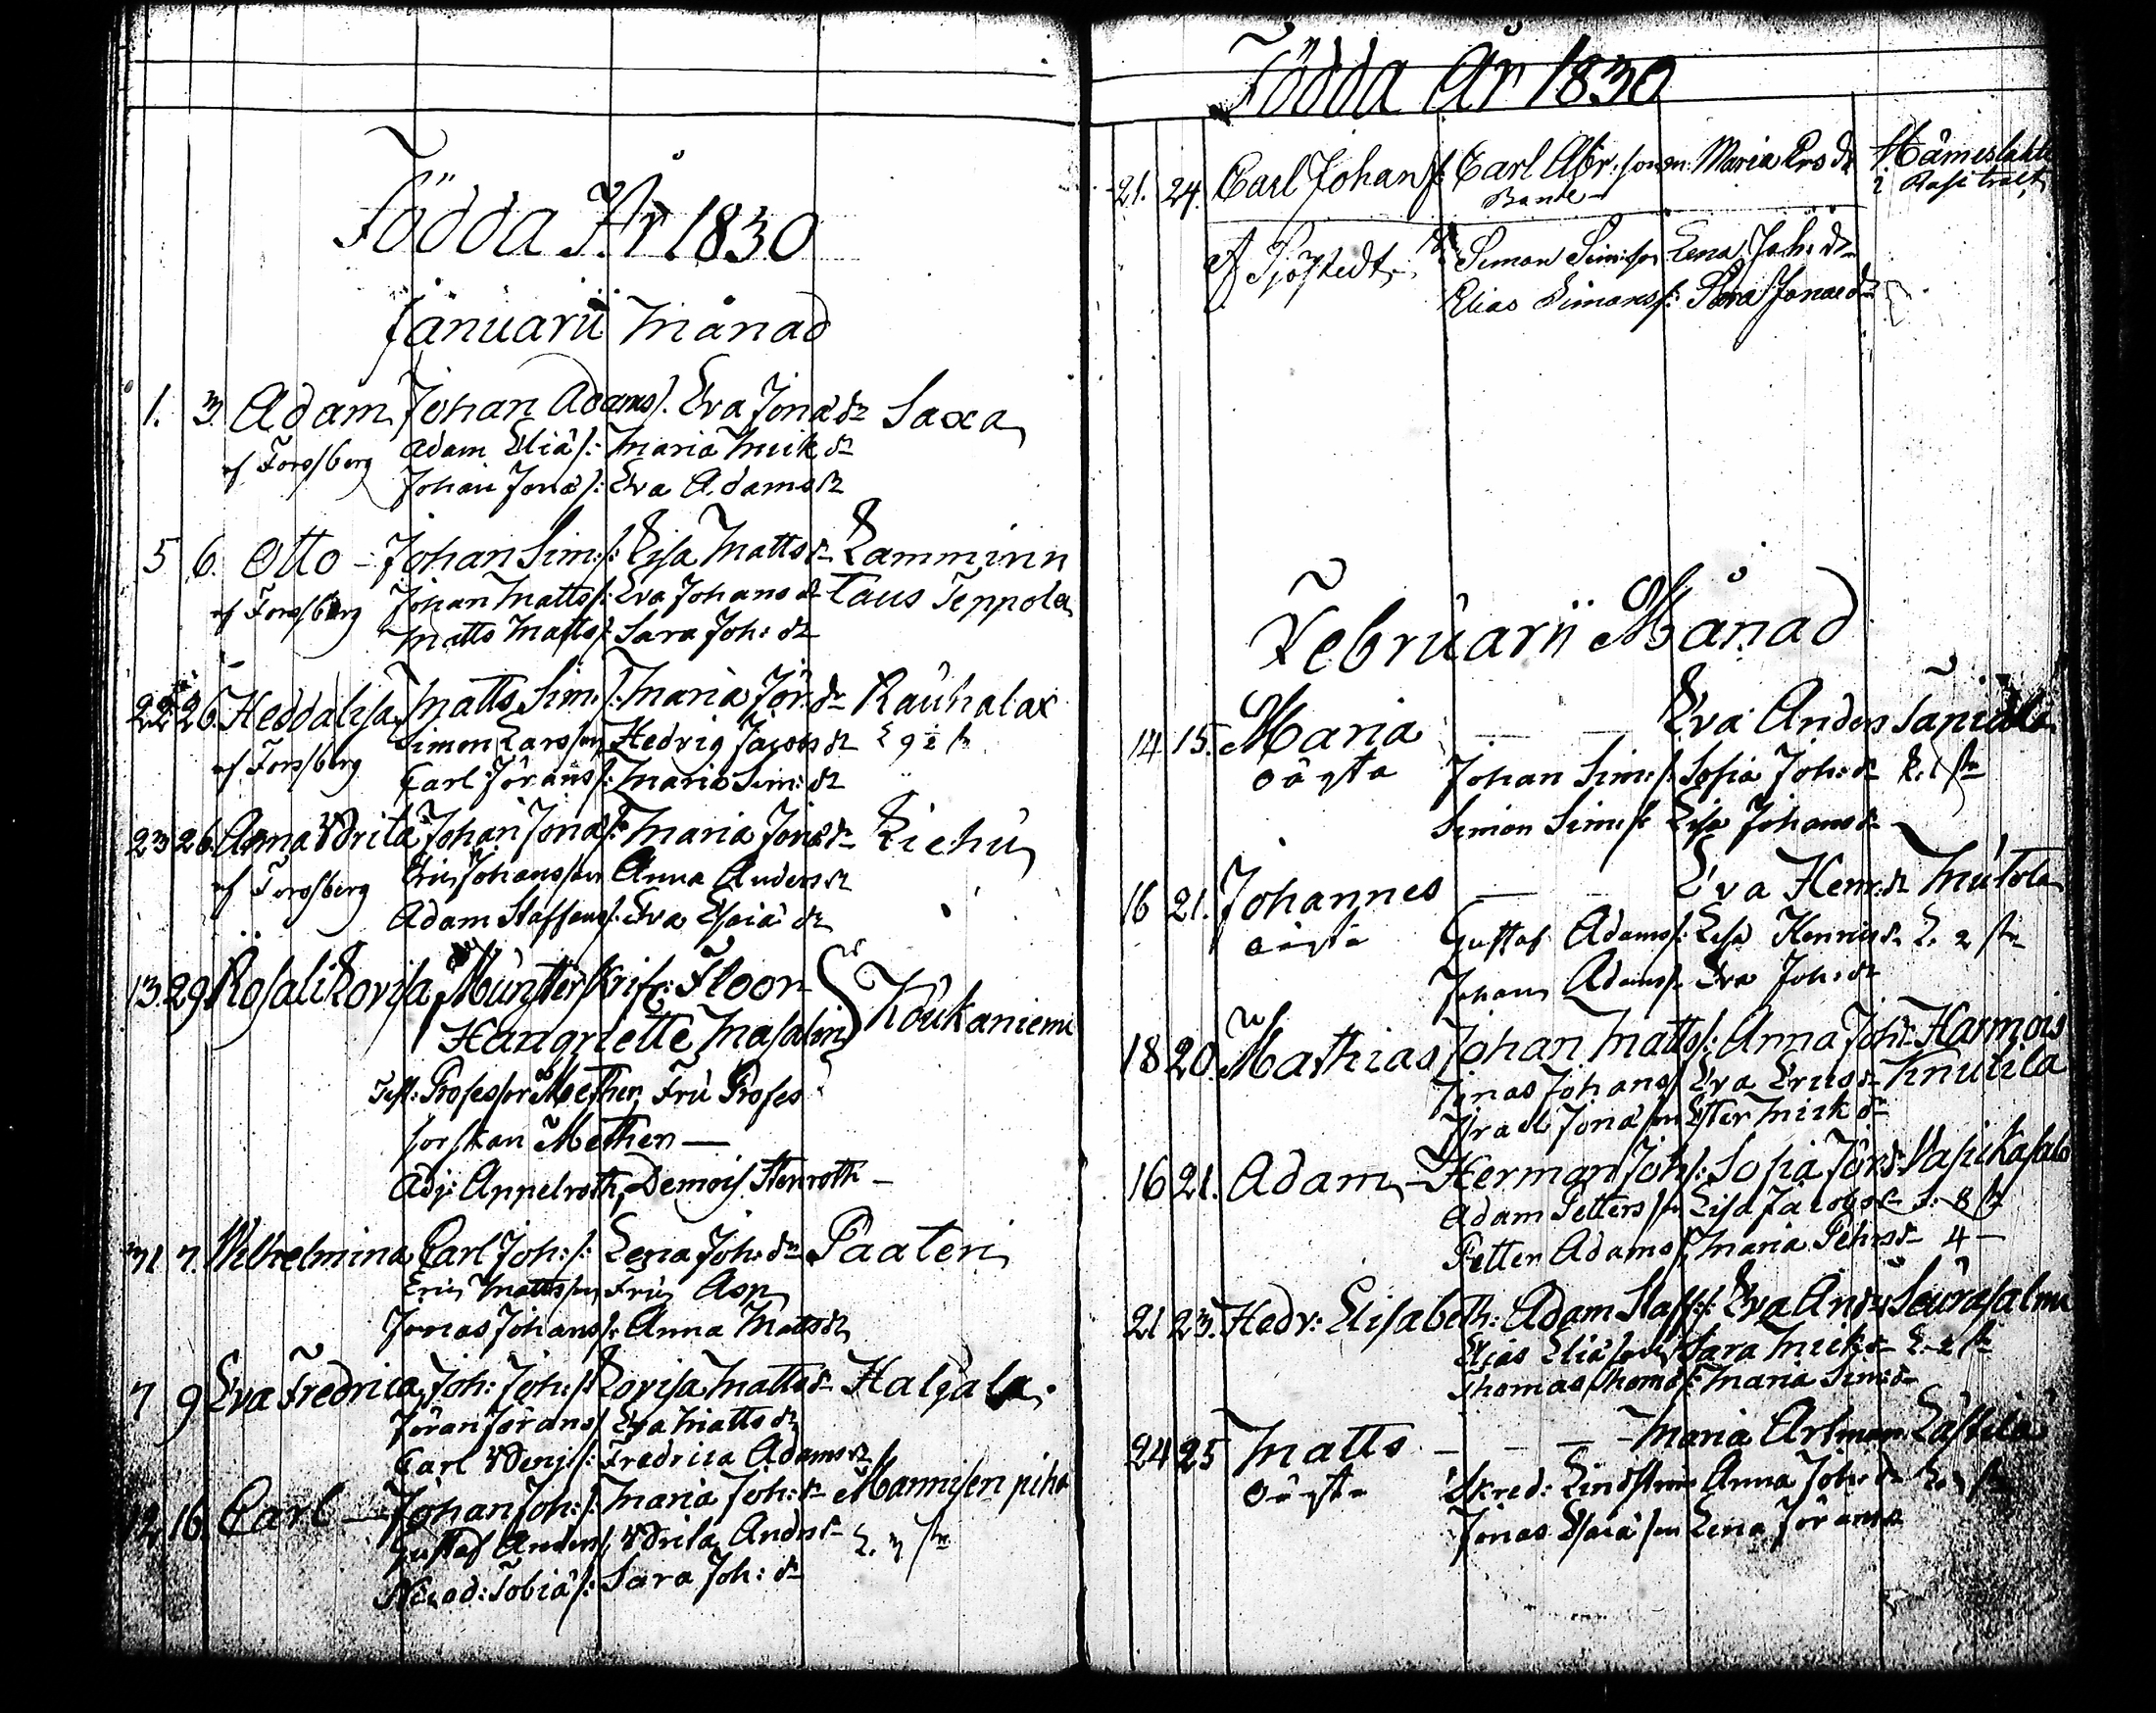 Födda År 1830
Januarii Månad
1. 3. Adam Johan Adams/. Eva Jona dr Saxa
af Forssberg Adam Eliä/: Maria Mick dr
Johan Jonä/: Eva Adams dr
5 6. Otto - Johan Sim:/: Lisa Matts dr Lamminn
af Forssberg Johan Matts/: Eva Johans dr Taus Teppola
Matts Matts/: Sara Joh: dr
22 26. Hedda Lisa Matts Sim:/. Maria Jör: dr Rauhalax
af Forssberg Simon Larsson Hedvig Jacobs dr
Carl Jörans/: Maria Sim: dr
23 26. Anna Udrika Johan Jonä/: Maria Jonä dr Kiehu
af Forssberg Eric Johansson Anna Anders dr
Adam Staffans/. Eva Esaiä dr
13. 29 Rosali Lovisa Münsterskrif: Floor
Hangriette Masalin Koukaniemi
Test: Professor Methen, Fru Profes
sorskan Methen —
Adj: Appelroth, Demois. Stenroth —
31 7. Wilhelmina Carl Joh:/: Lena Joh: dr Paateri
Eric Mattsson Fru Asp
Jonas Johans/: Anna Matts dr
7 9 Eva Fredrica Joh: Joh:/: Lovisa Matts dr Halgala.
Jöran Jörans/ Eva Matts dr
Carl Benj/: Fredrica Adams dr
12 16. Carl — Johan Joh:/: Maria Joh: dr Mannisen piha
Gustaf Anders/. Udrika Anders dr
Nicod: Tobiä/: Sara Joh: dr
Födda År 1830
21. 24. Carl Johan Carl Abr:son Maria Ers dr Hämeslahti
Bonde i
Af Sjöstedt. Simon Sim:son Lena Joh: dr
Elias Simons/: Sara Jonae dr
Februarii Månad
14 15. Maria — — Eva Anders
oägta Johan Sim:/. Sofia Joh: dr
Simon Sim:/: Lisa Johans dr
16 21. Johannes — — Eva Henr: dr Mutola
oägta Gustaf Adams/: Lisa Henrics dr
Johan Adams/. Eva Joh: dr
18 20. Mathias Johan Matts/: Anna Joh: dr Harmois
Jonas Johans/ Eva Erics dr Knutila
Israel Jonäson Ester Mick dr
16 21. Adam — Herman Joh/: Sofia Jör dr Vasikasalo
Adam Petters/n Lisa Jacobs dr
Petter Adams/: Maria Pehrs dr 4 —
21 23. Hedv: Elisabeth: Adam Staff:/: Eva And: dr Seurasalmi
Elias Eliäson Sara Mick dr
Thomas Thoms/: Maria Sim: dr
24 25 Matts — — — Maria Artman
oägta Skred: Lindström Anna Joh: dr
Jonas Esaiäson Lena Jörans dr